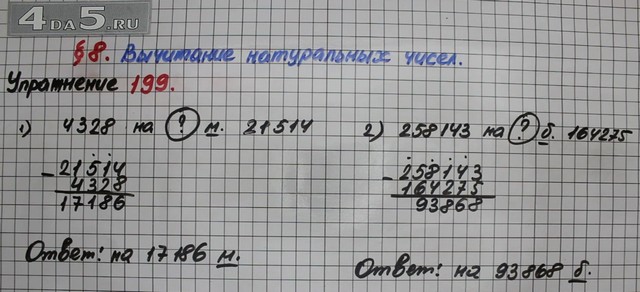 4DA5.RU
§ 8. Вычитание натуральных чисел.
Упражнение 199.
1) 4328 на ? м. 21514
- 21514
4328
17186
Ответ: на 17186 м.
2) 258143 на ? б. 164275
- 258143
164275
93868
Ответ: на 93868 б.